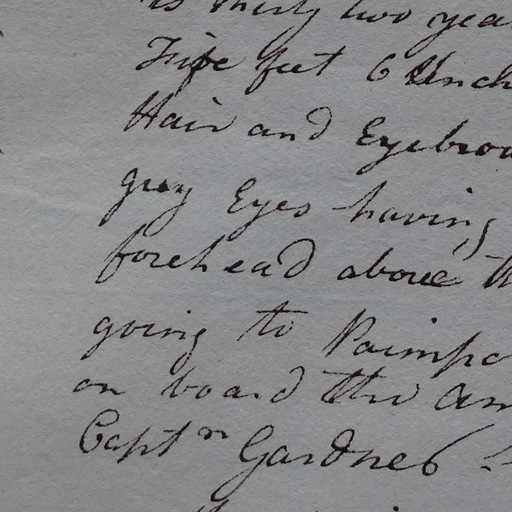 is thirty two yea
Five feet 6 Unch
Hair and Eyebrow
grey Eyes having
forehead above th
going to Paimpo
on board the Am
Captn Gardner